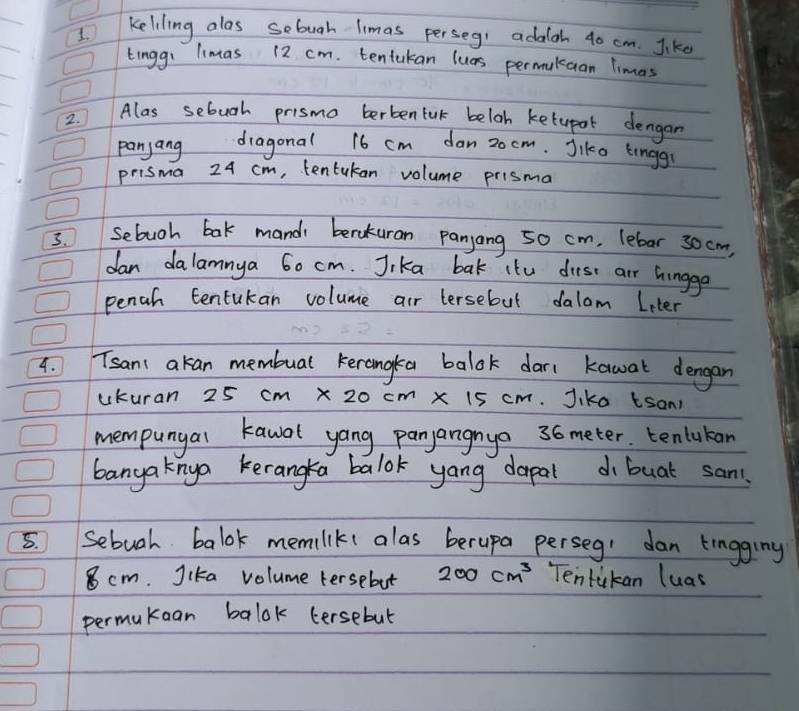 1. Keliling alas sebuah limas persegi adalah 40 cm. Jika
tinggi limas 12 cm. tentukan luas permukaan limas
2. Alas sebuah prisma berbentuk belah ketupat dengan
panjang diagonal 16 cm dan 20 cm. Jika tinggi
prisma 24 cm, tentukan volume prisma
3. Sebuah bak mandi berukuran panjang 50 cm, lebar 30 cm,
dan dalamnya 60 cm. Jika bak itu diisi air hingga
penuh tentukan volume air tersebut dalam Liter
4. Tsani akan membuat kerangka balok dari kawat dengan
ukuran 25 cm x 20 cm x 15 cm. Jika tsani
mempunyai kawat yang panjangnya 36 meter. tentukan
banyaknya kerangka balok yang dapat di buat sani.
5. Sebuah balok memiliki alas berupa persegi dan tingginy
8 cm. Jika volume tersebut 200 cm³ Tentukan luas
permukaan balok tersebut